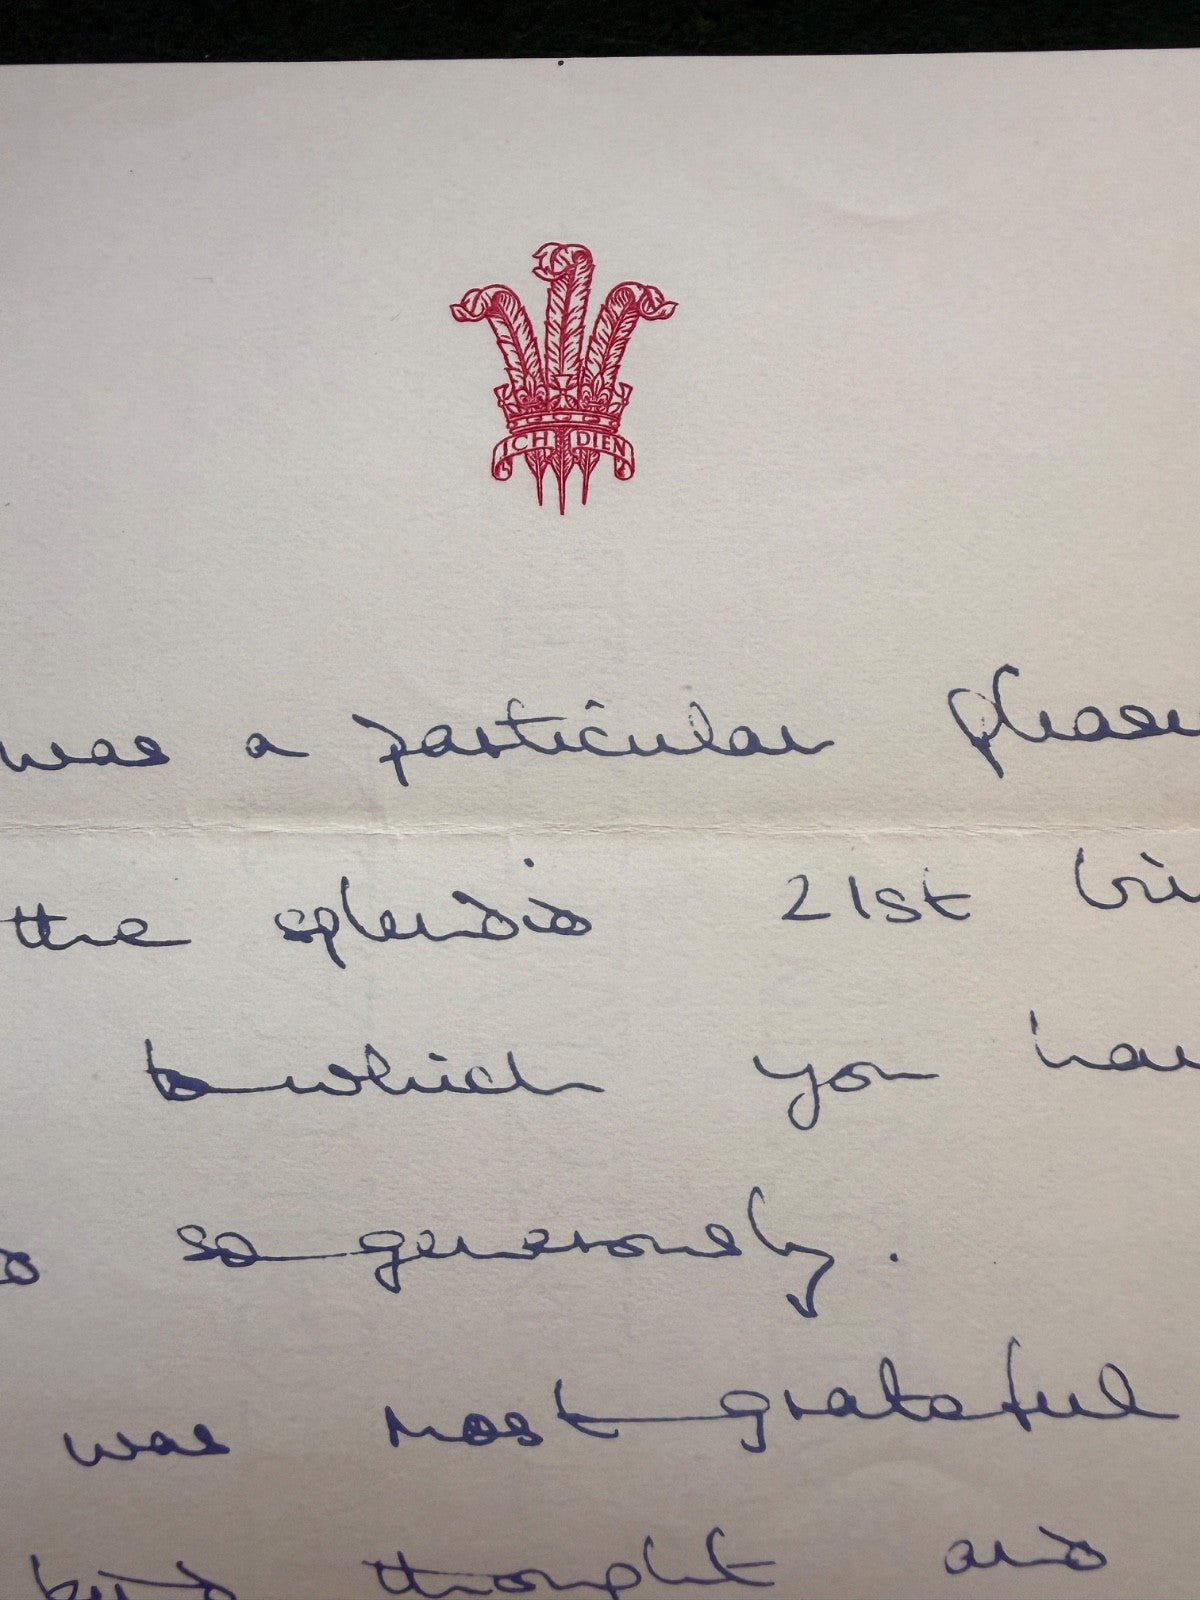 ICH DIEN
was a particular pleasu
the splendid 21st bir
to which you hav
so generously.
was most grateful
kind thought and